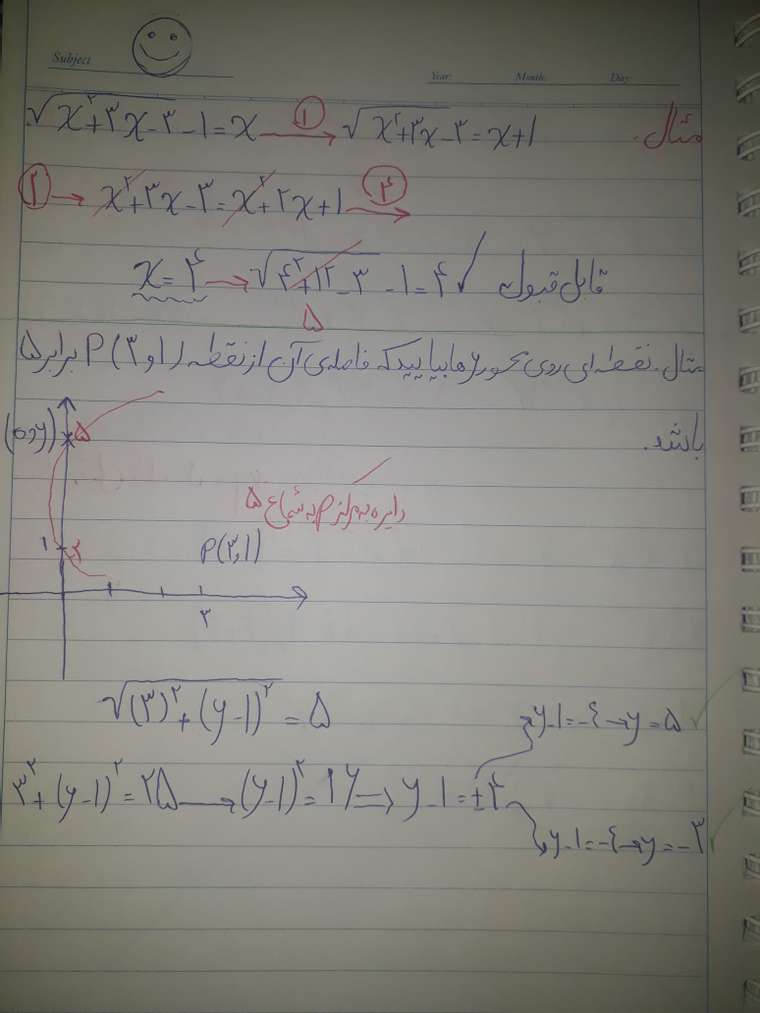 Subject
Year: Month: Day:
مثال. √x²+۳x-۳ -۱=x ① → √x²+۳x-۳=x+۱
② → x²+۳x-۳=x²+۲x+۱ ③ →
x=۴ → √۴²+۱۲-۳ -۱=۴ ✓ قابل قبول
۵
مثال. نقطه ای روی محور yها بیابید که فاصله‌ی آن از نقطه P(۳و۱) برابر ۵
باشد.
(۰وy) ۵
دایره به مرکز P به شعاع ۵
۱ -۳ P(۳,۱)
۳
√(۳)²+(y-۱)² = ۵
y-۱=-۴ → y=۵ ✓
۳²+(y-۱)²=۲۵ → (y-۱)²=۱۶ ⇒ y-۱=±۴
y-۱=-۴ → y=-۳ ✓